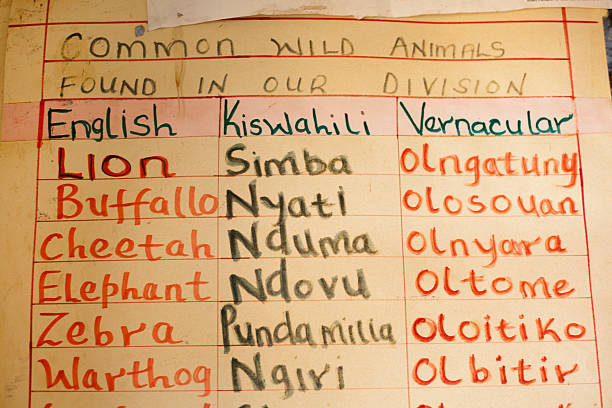 COMMON WILD ANIMALS
FOUND IN OUR DIVISION
English Kiswahili Vernacular
LION Simba Olngatuny
Buffallo Nyati Olosouan
Cheetah Nduma Olnyara
Elephant Ndovu Oltome
Zebra Pundamilia Oloitiko
Warthog Ngiri Olbitir